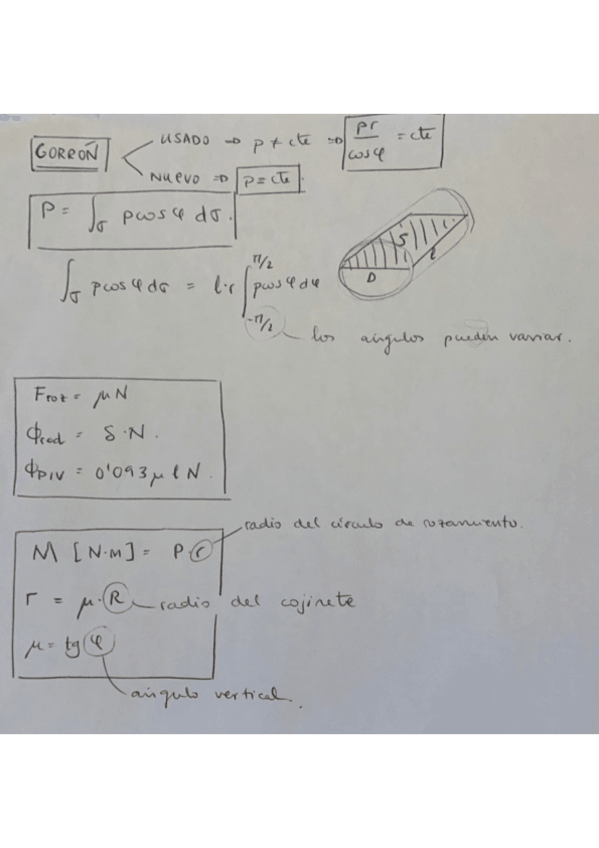 GORRÓN
USADO ⇒ p ≠ cte ⇒ pr/cosφ = cte
NUEVO ⇒ p = cte.
P = ∫σ p cosφ dσ.
∫σ p cosφ dσ = l·r ∫ π/2 -π/2 p cosφ dφ
S
D
l
los ángulos pueden variar.
Froz = μN
Φrod = δ·N.
ΦPIV = 0'093 μ l N.
radio del círculo de rozamiento.
M [N·m] = P·r
r = μ·R radio del cojinete
μ = tg φ
ángulo vertical.